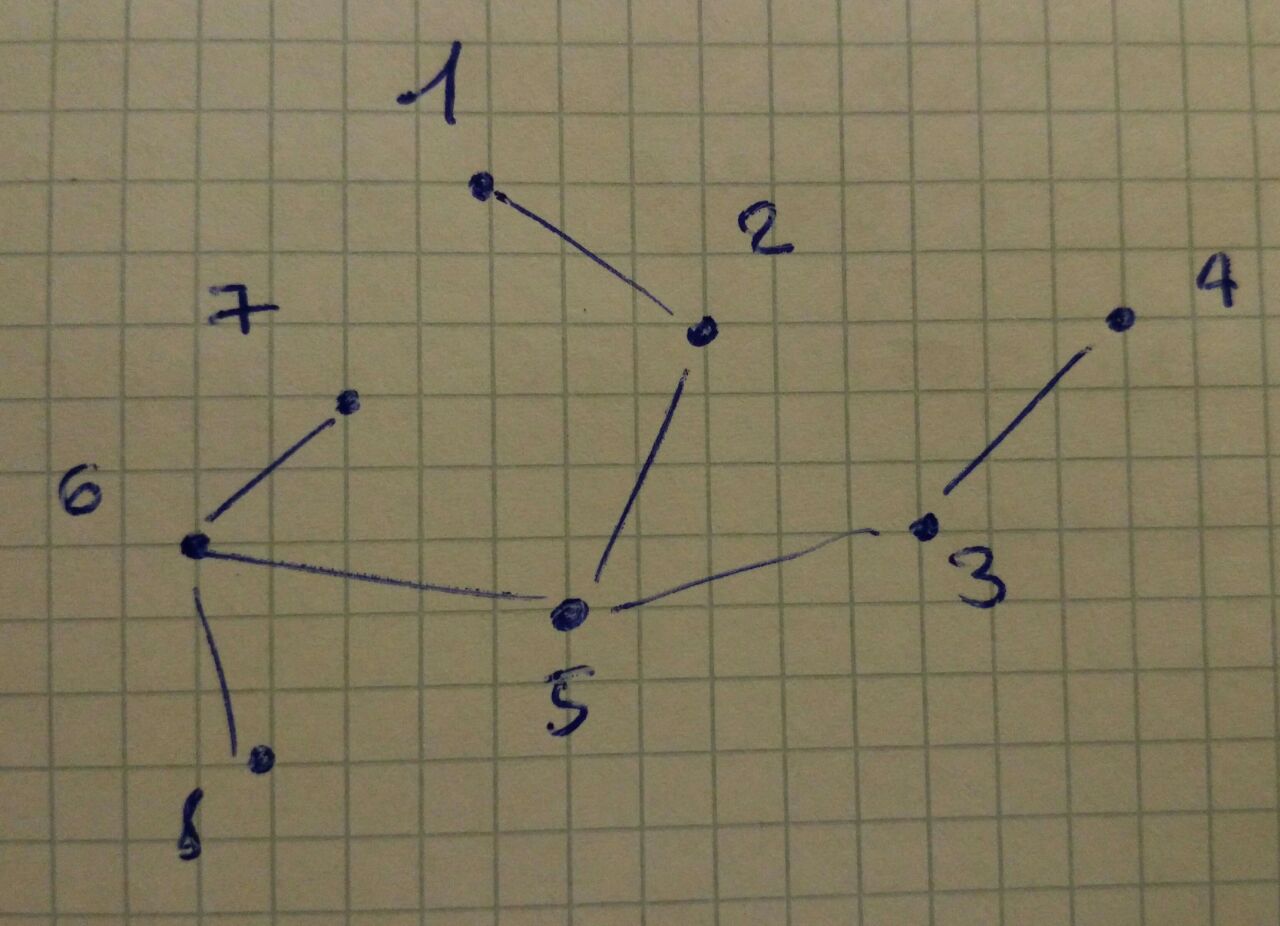 1
2
4
7
6
3
5
8